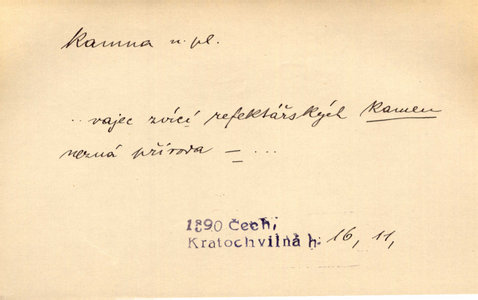 Kamna n. pl.
.. vajec zvící refektářských kamen
nezná příroda – ...
1890 Čech,
Kratochvilná h. 16, 11,